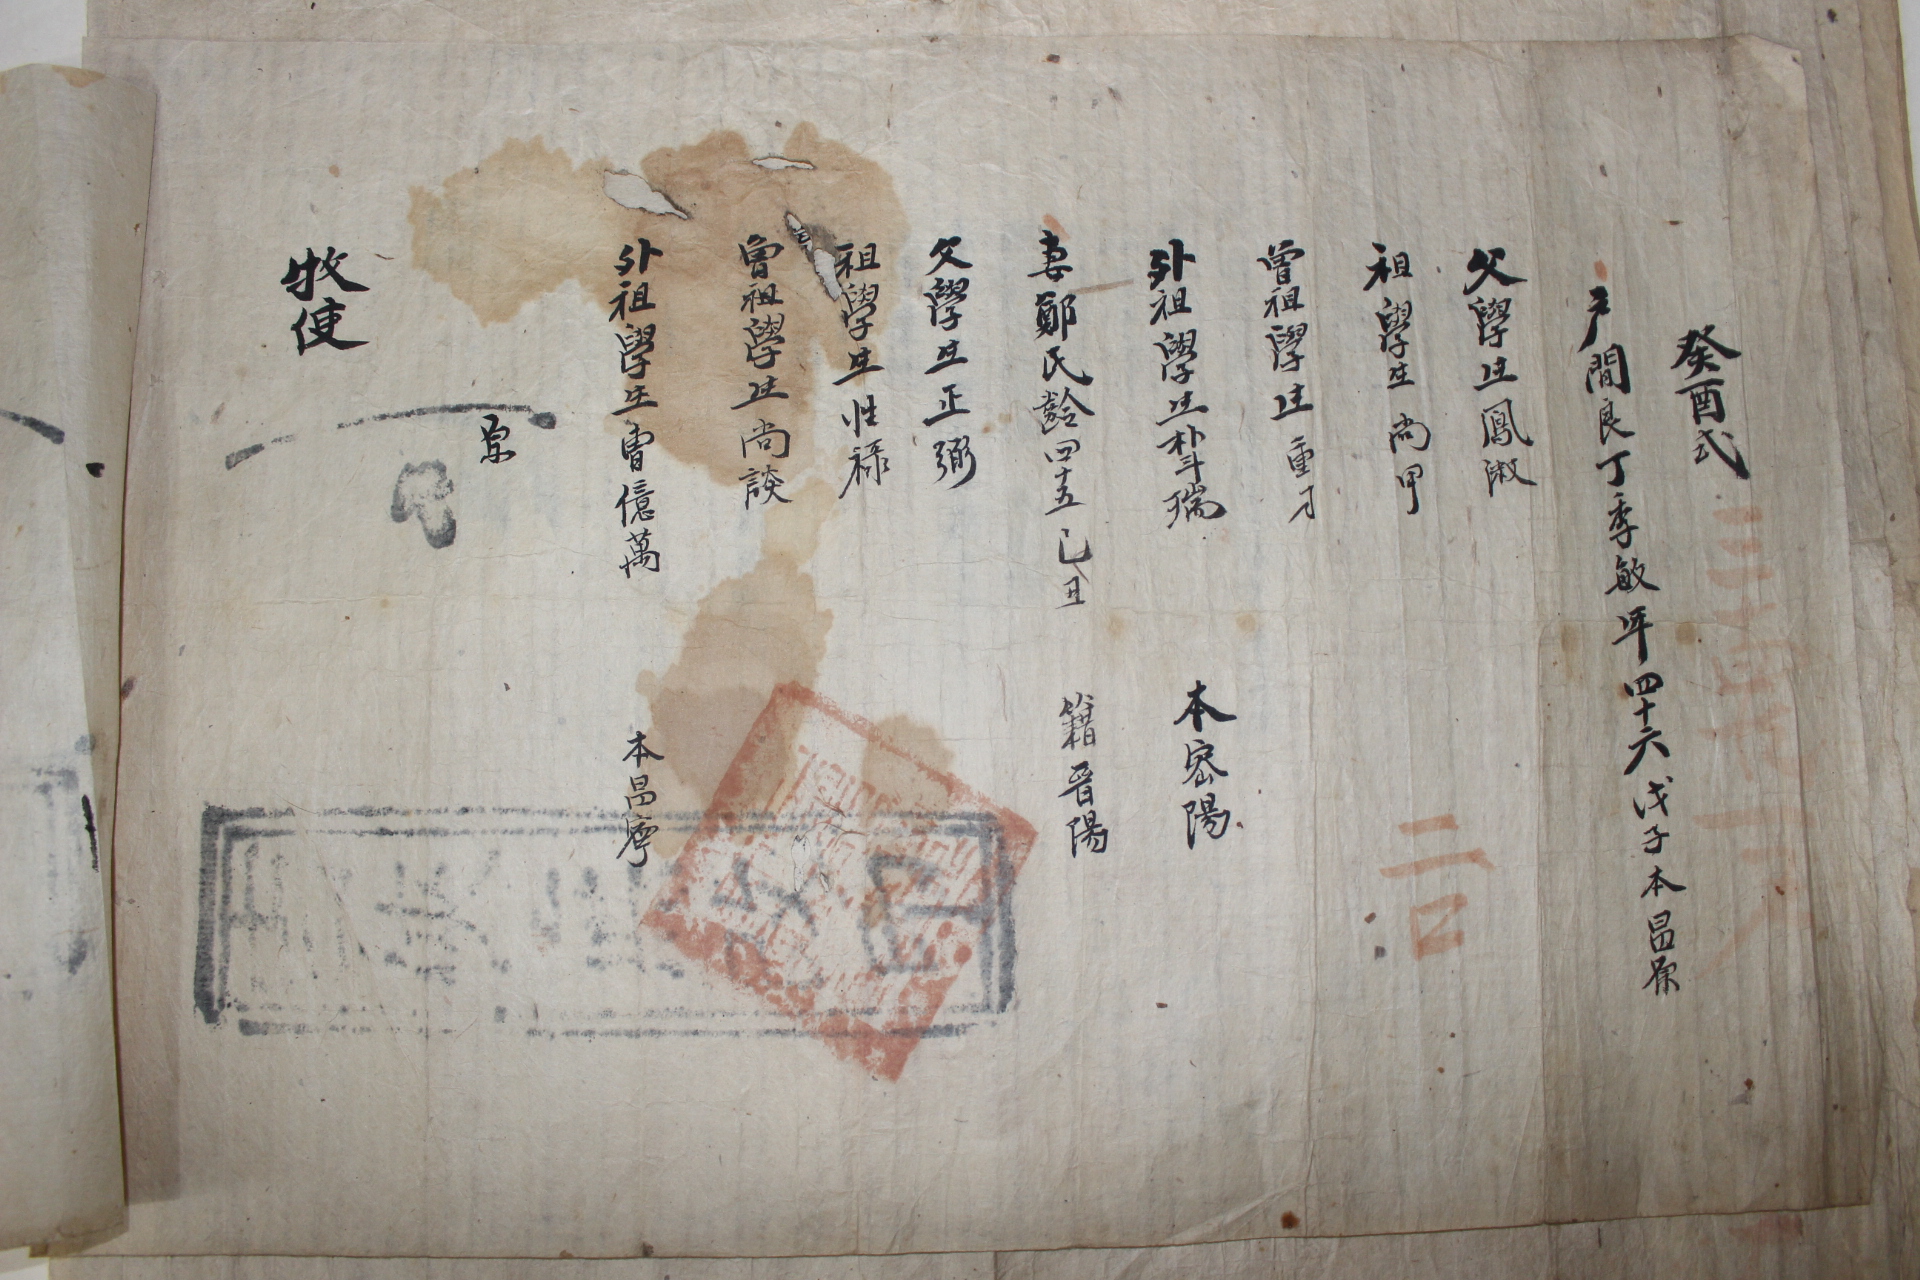 癸酉式
戶閒良丁季敏年四十六戊子本昌原
父學生鳳淑
祖學生尚甲
曾祖學生重
外祖學生朴斗瑞 本密陽
妻鄭氏齡四十五己丑 籍晋陽
父學生正弼
祖學生性祿
曾祖學生尚談
外祖學生曺億萬 本昌寧
牧使
二口